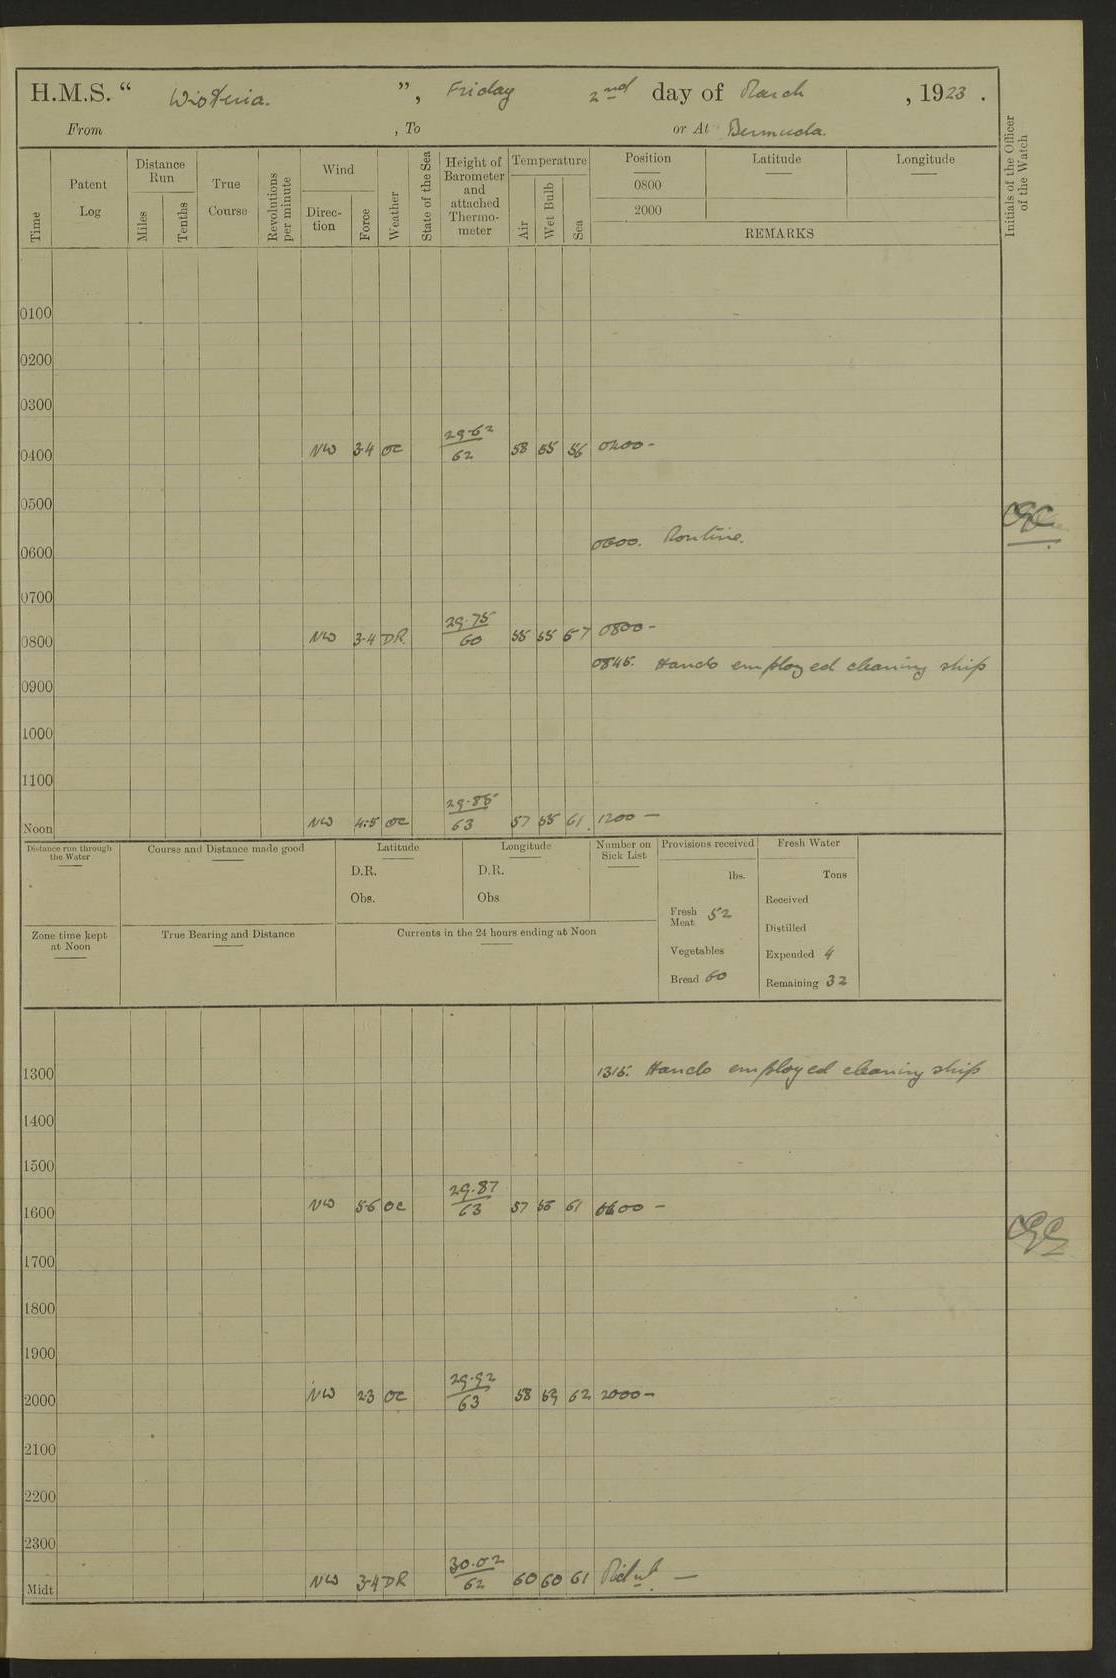 H.M.S. “ Wisteria. ”, Friday 2nd day of March , 1923 .
From , To or At Bermuda.
Time
Patent Log
Distance Run
Miles
Tenths
True Course
Revolutions per minute
Wind
Direc-
tion
Force
Weather
State of the Sea
Height of
Barometer
and
attached
Thermo-
meter
Temperature
Air
Wet Bulb
Sea
Position
0800
2000
Latitude
Longitude
REMARKS
Initials of the Officer
of the Watch
0100
0200
0300
0400 NW 3-4 OC 29.62 / 62 58 55 56 0400 -
0500
0600 0600. Routine.
0700
0800 NW 3-4 DR 29.75 / 60 55 55 57 0800 -
0845. Hands employed cleaning ship
0900
1000
1100
Noon NW 4-5 OC 29.85 / 63 57 55 61 1200 —
Distance run through
the Water
Course and Distance made good
Latitude
D.R.
Obs.
Longitude
D.R.
Obs
Number on
Sick List
Provisions received
lbs.
Fresh Meat 52
Vegetables
Bread 60
Fresh Water
Tons
Received
Distilled
Expended 4
Remaining 32
Zone time kept
at Noon
True Bearing and Distance
Currents in the 24 hours ending at Noon
1300 1315. Hands employed cleaning ship
1400
1500
1600 NW 5-6 OC 29.87 / 63 57 61 1600 -
1700
1800
1900
2000 NW 2-3 OC 29.92 / 63 58 59 62 2000 -
2100
2200
2300
Midt NW 3-4 DR 30.02 / 62 60 60 61 Midnt. —